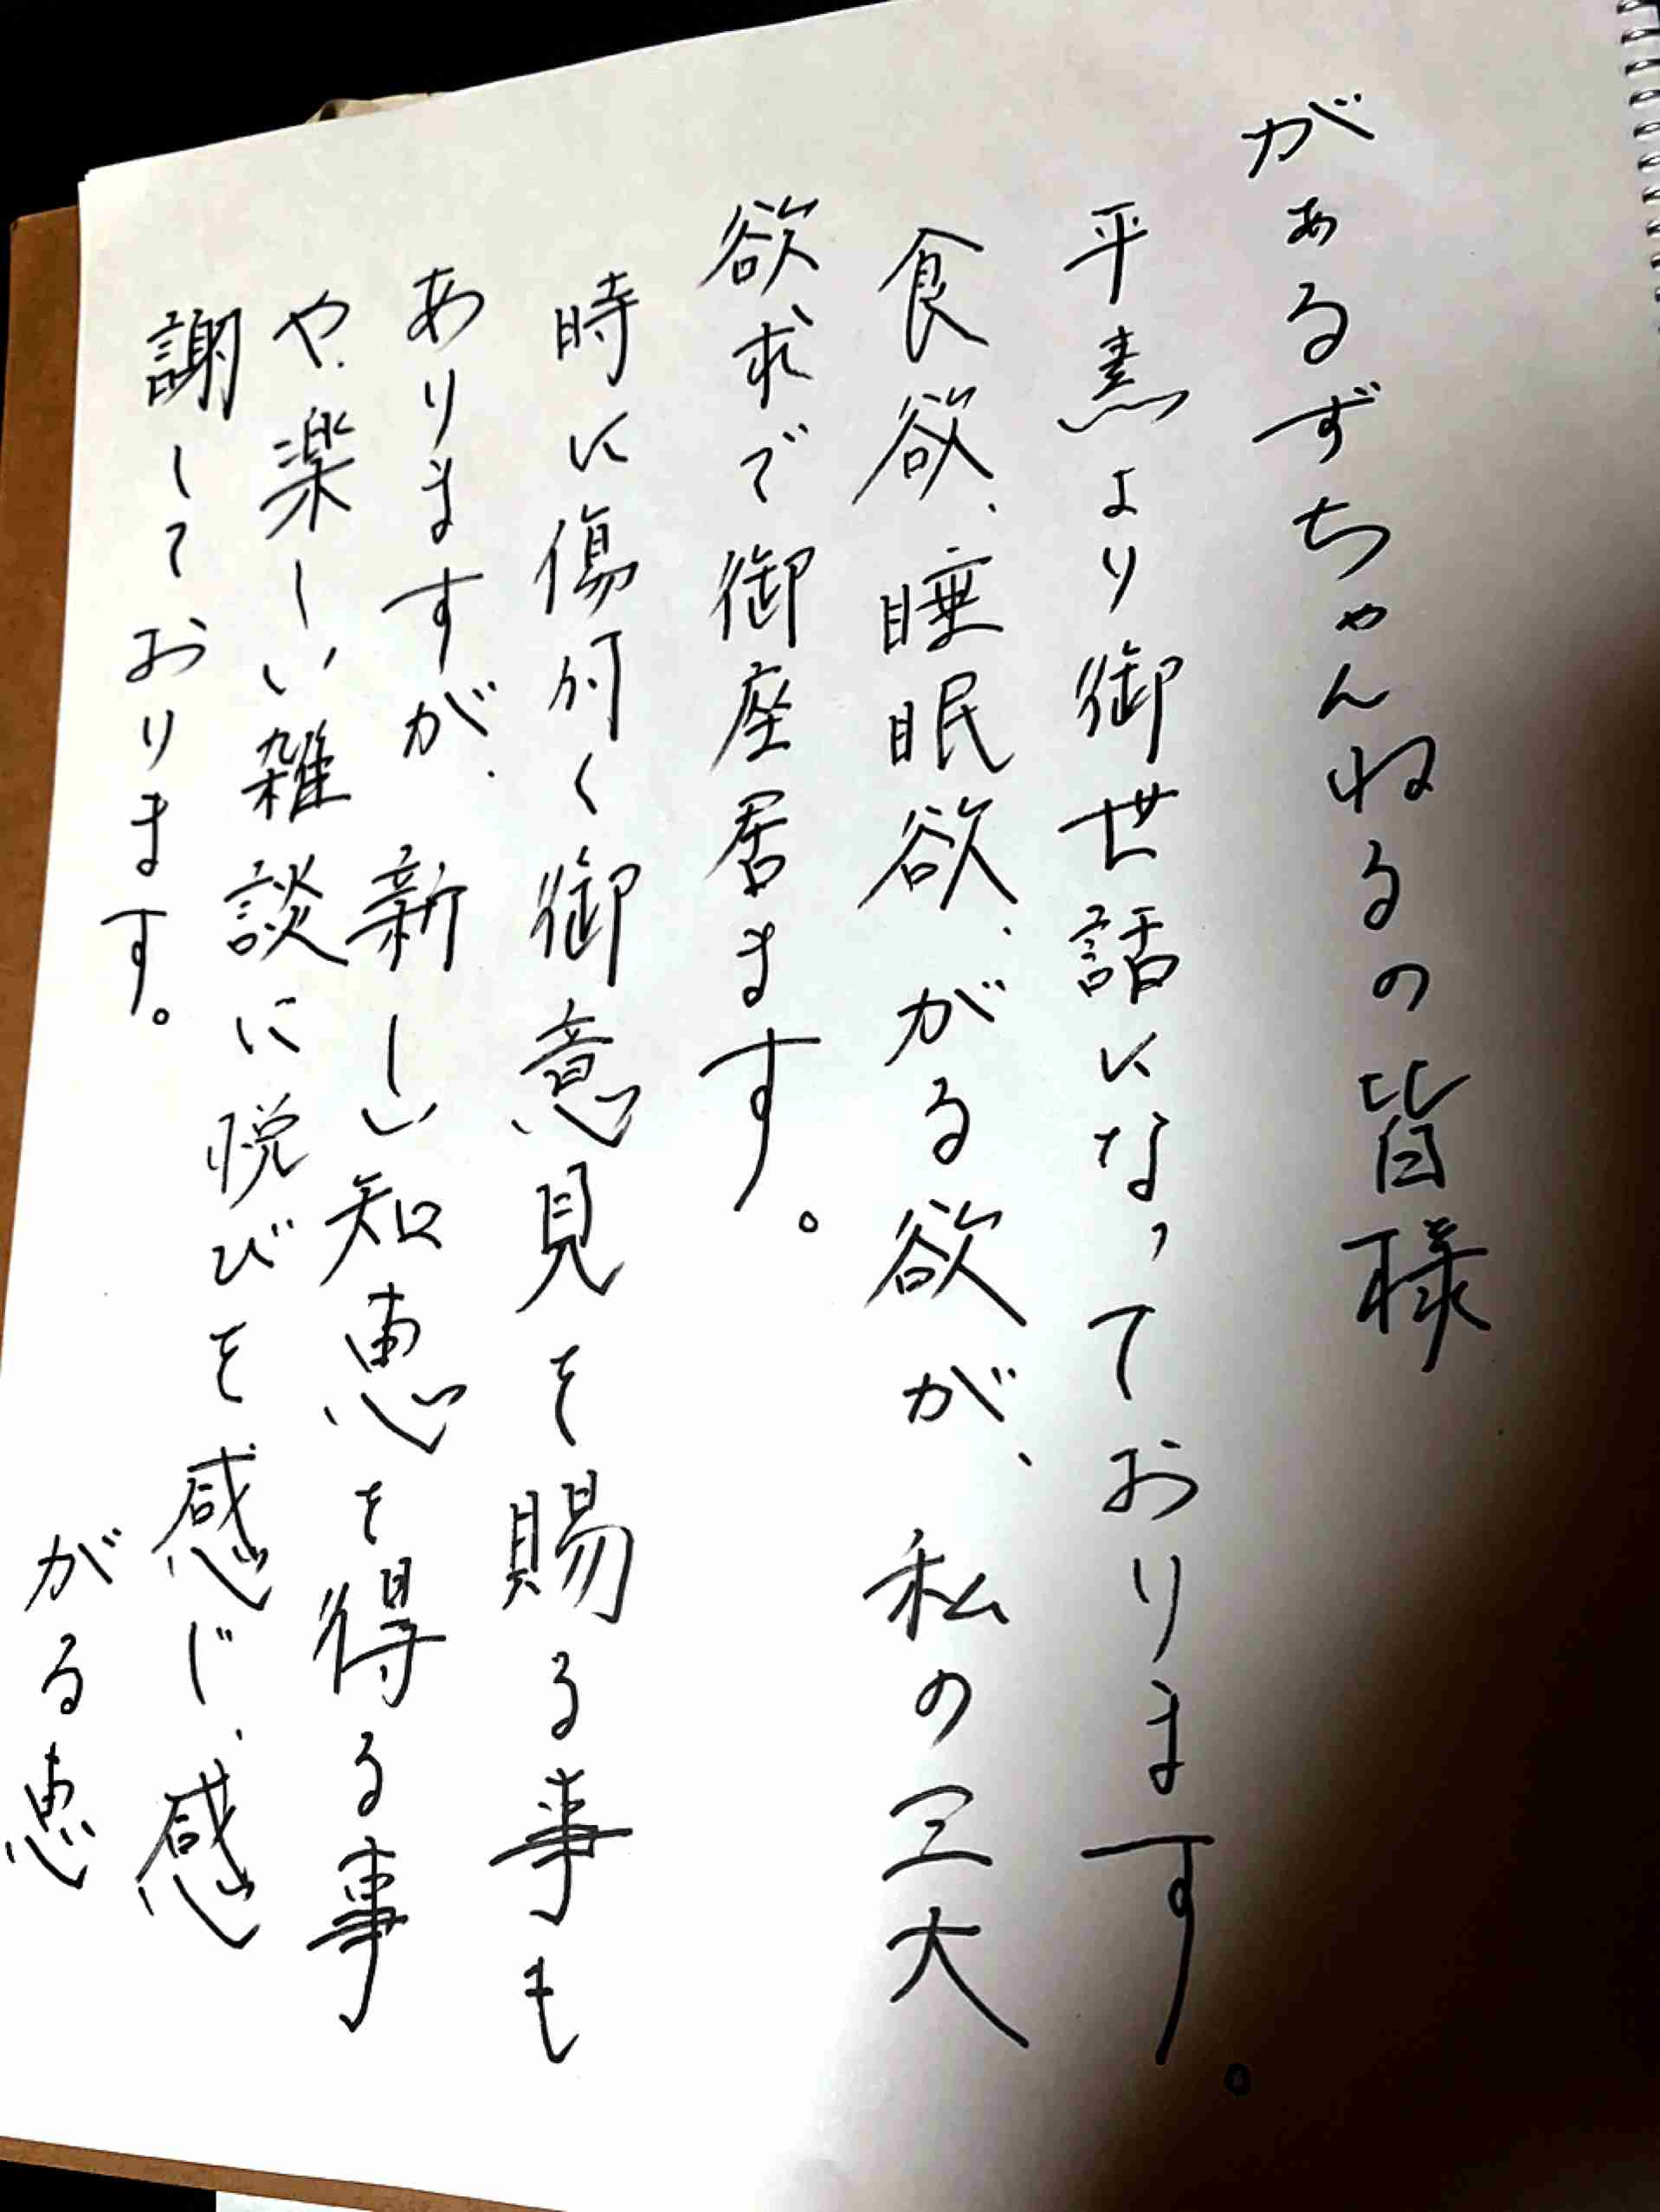 がぁるずちゃんねるの皆様
平素より御世話になっております。
食欲、睡眠欲、がる欲が、私の三大
欲求で御座居ます。
時に傷付く御意見を賜る事も
ありますが、新しい知恵を得る事
や、楽しい雑談に悦びを感じ、感
謝しております。
がる恵